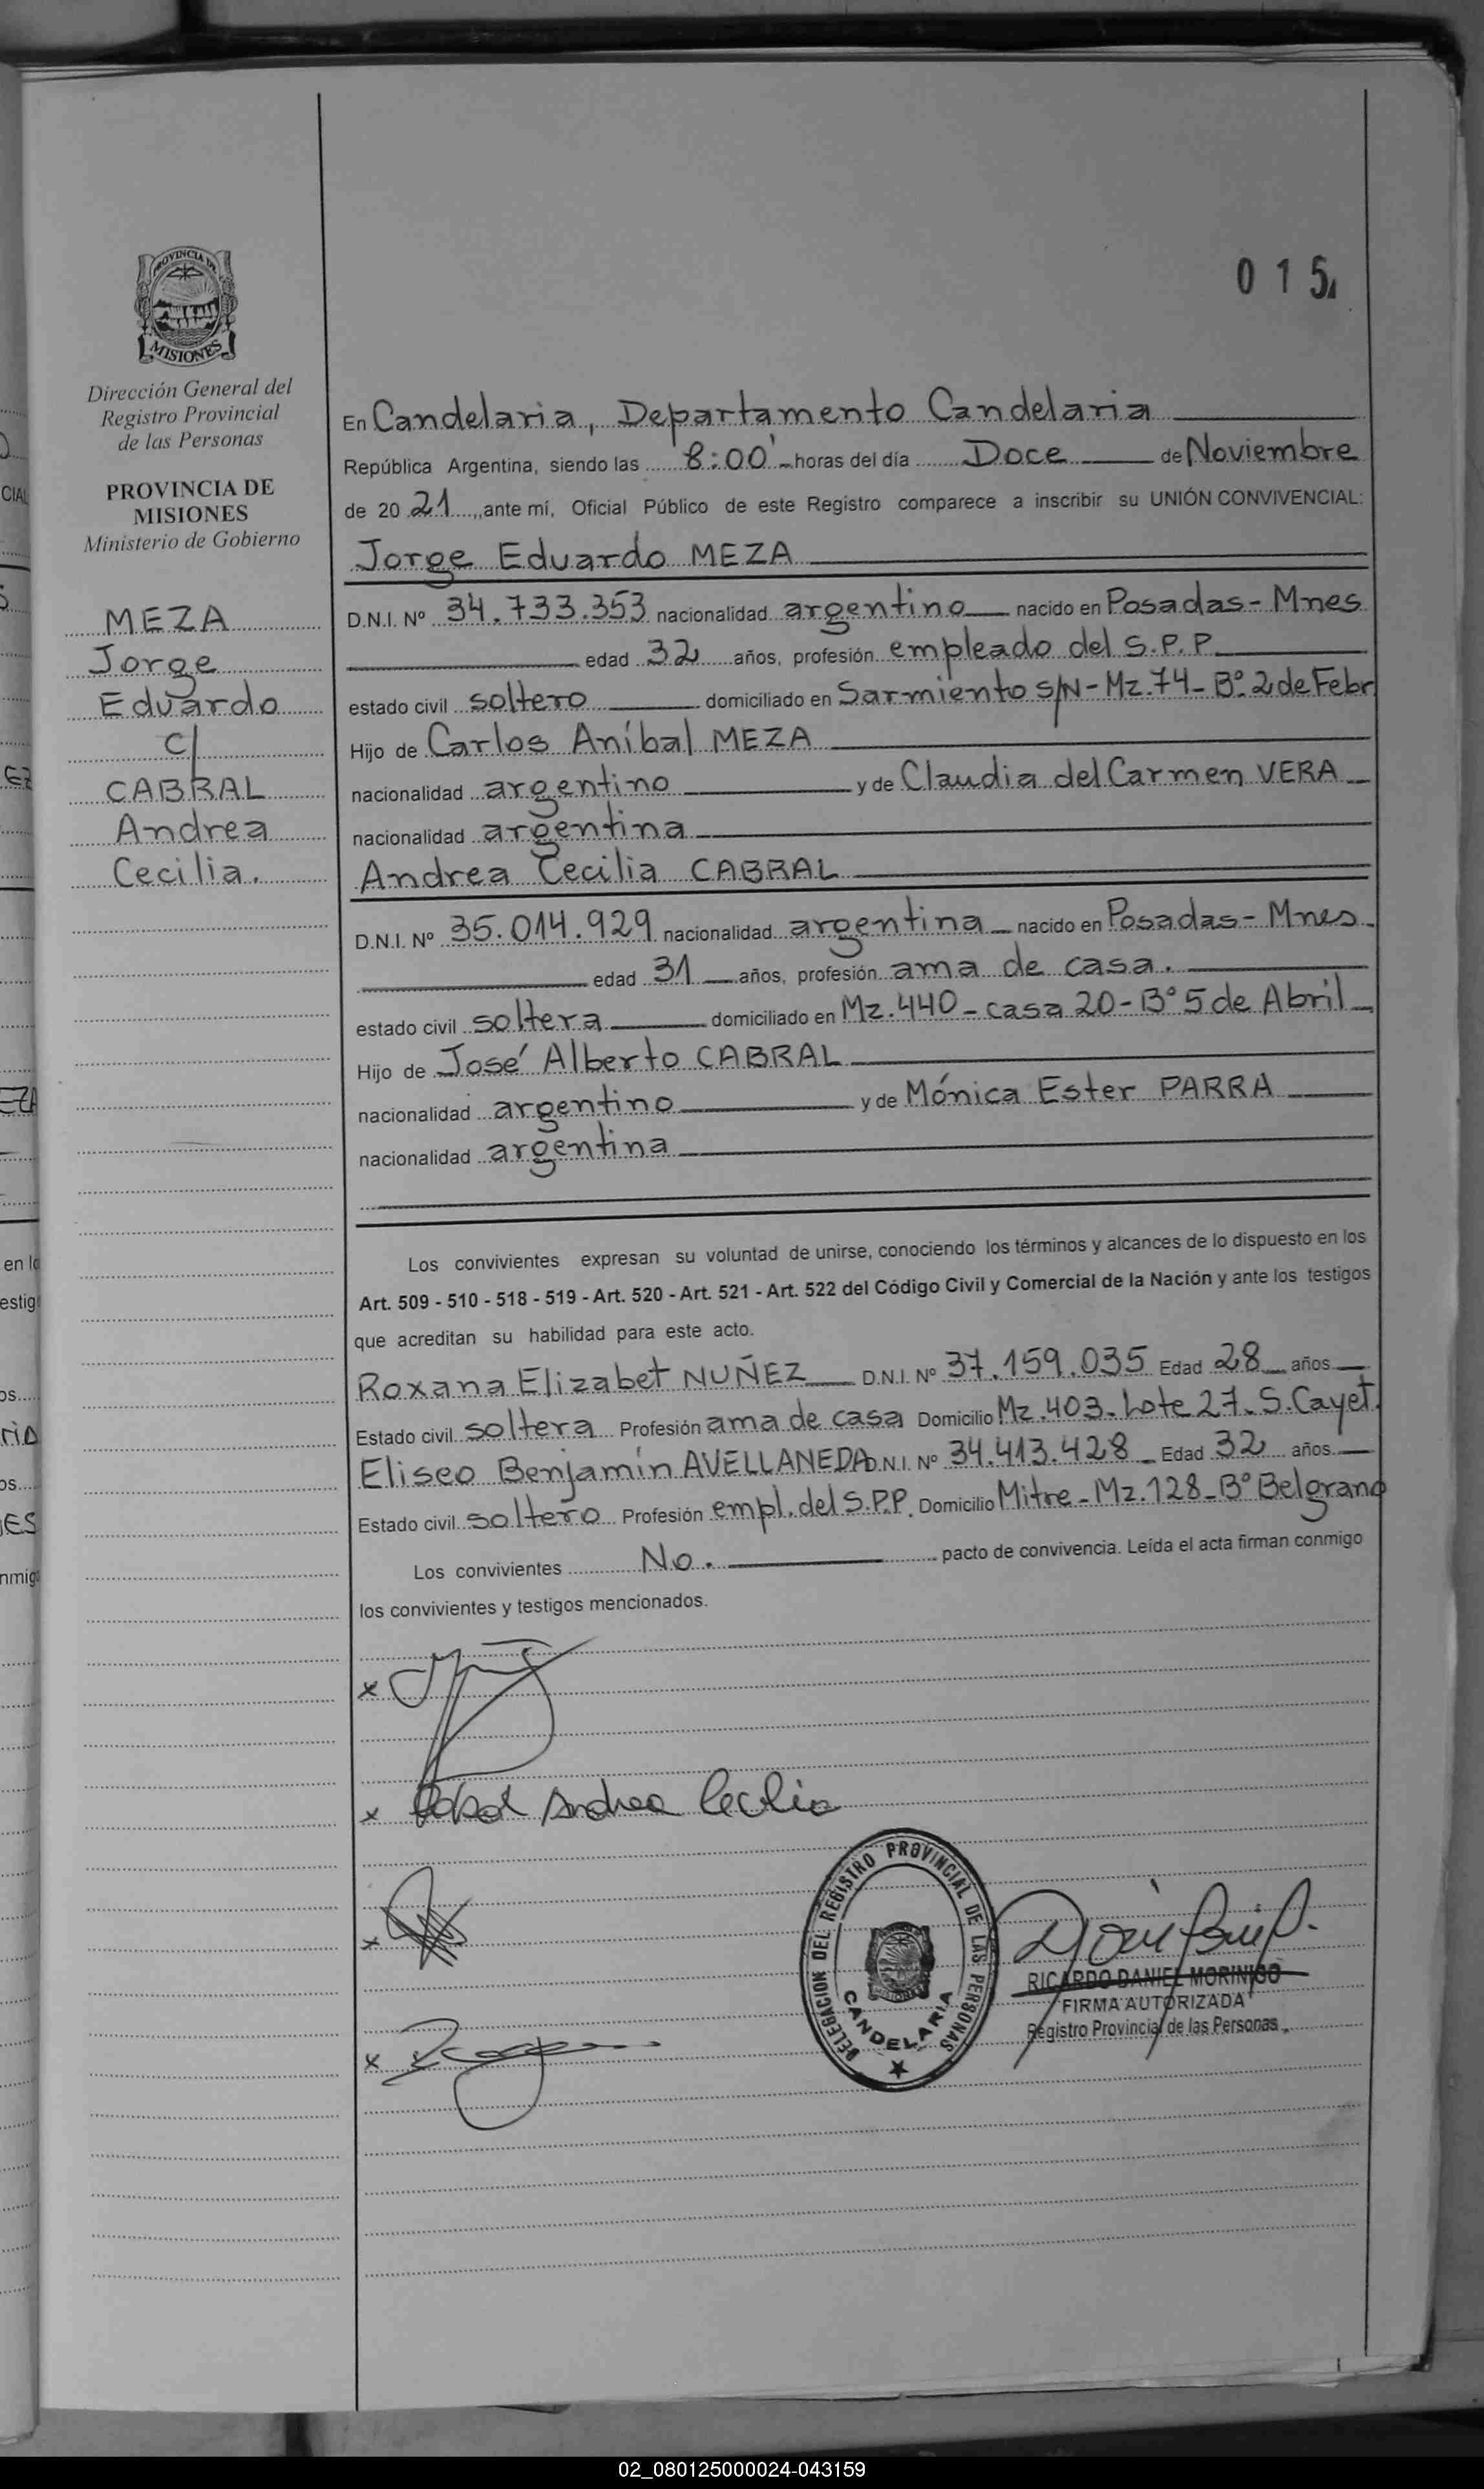 015
PROVINCIA DE
MISIONES
Dirección General del
Registro Provincial
de las Personas
PROVINCIA DE
MISIONES
Ministerio de Gobierno
MEZA
Jorge
Eduardo
c/
CABRAL
Andrea
Cecilia.
En Candelaria, Departamento Candelaria
República Argentina, siendo las 8:00' horas del día Doce de Noviembre
de 2021, ante mí, Oficial Público de este Registro comparece a inscribir su UNIÓN CONVIVENCIAL:
Jorge Eduardo MEZA
D.N.I. Nº 34.733.353 nacionalidad argentino nacido en Posadas - Mnes
edad 32 años, profesión empleado del S.P.P
estado civil soltero domiciliado en Sarmiento S/N - Mz.74 - Bº 2 de Febr
Hijo de Carlos Aníbal MEZA
nacionalidad argentino y de Claudia del Carmen VERA
nacionalidad argentina
Andrea Cecilia CABRAL
D.N.I. Nº 35.014.929 nacionalidad argentina nacido en Posadas - Mnes
edad 31 años, profesión ama de casa.
estado civil soltera domiciliado en Mz.440 - casa 20 - Bº 5 de Abril
Hijo de José Alberto CABRAL
nacionalidad argentino y de Mónica Ester PARRA
nacionalidad argentina
Los convivientes expresan su voluntad de unirse, conociendo los términos y alcances de lo dispuesto en los
Art. 509 - 510 - 518 - 519 - Art. 520 - Art. 521 - Art. 522 del Código Civil y Comercial de la Nación y ante los testigos
que acreditan su habilidad para este acto.
Roxana Elizabet NUÑEZ D.N.I. Nº 37.159.035 Edad 28 años
Estado civil soltera Profesión ama de casa Domicilio Mz.403 - Lote 27 - S.Cayet.
Eliseo Benjamín AVELLANEDA D.N.I. Nº 34.413.428 Edad 32 años
Estado civil soltero Profesión empl. del S.P.P. Domicilio Mitre - Mz.128 - Bº Belgrano
Los convivientes No. pacto de convivencia. Leída el acta firman conmigo
los convivientes y testigos mencionados.
x
x Cabral Andrea Cecilia
x
x
DELEGACION DEL REGISTRO PROVINCIAL DE LAS PERSONAS
CANDELARIA
RICARDO DANIEL MORINIGO
FIRMA AUTORIZADA
Registro Provincial de las Personas
02_080125000024-043159